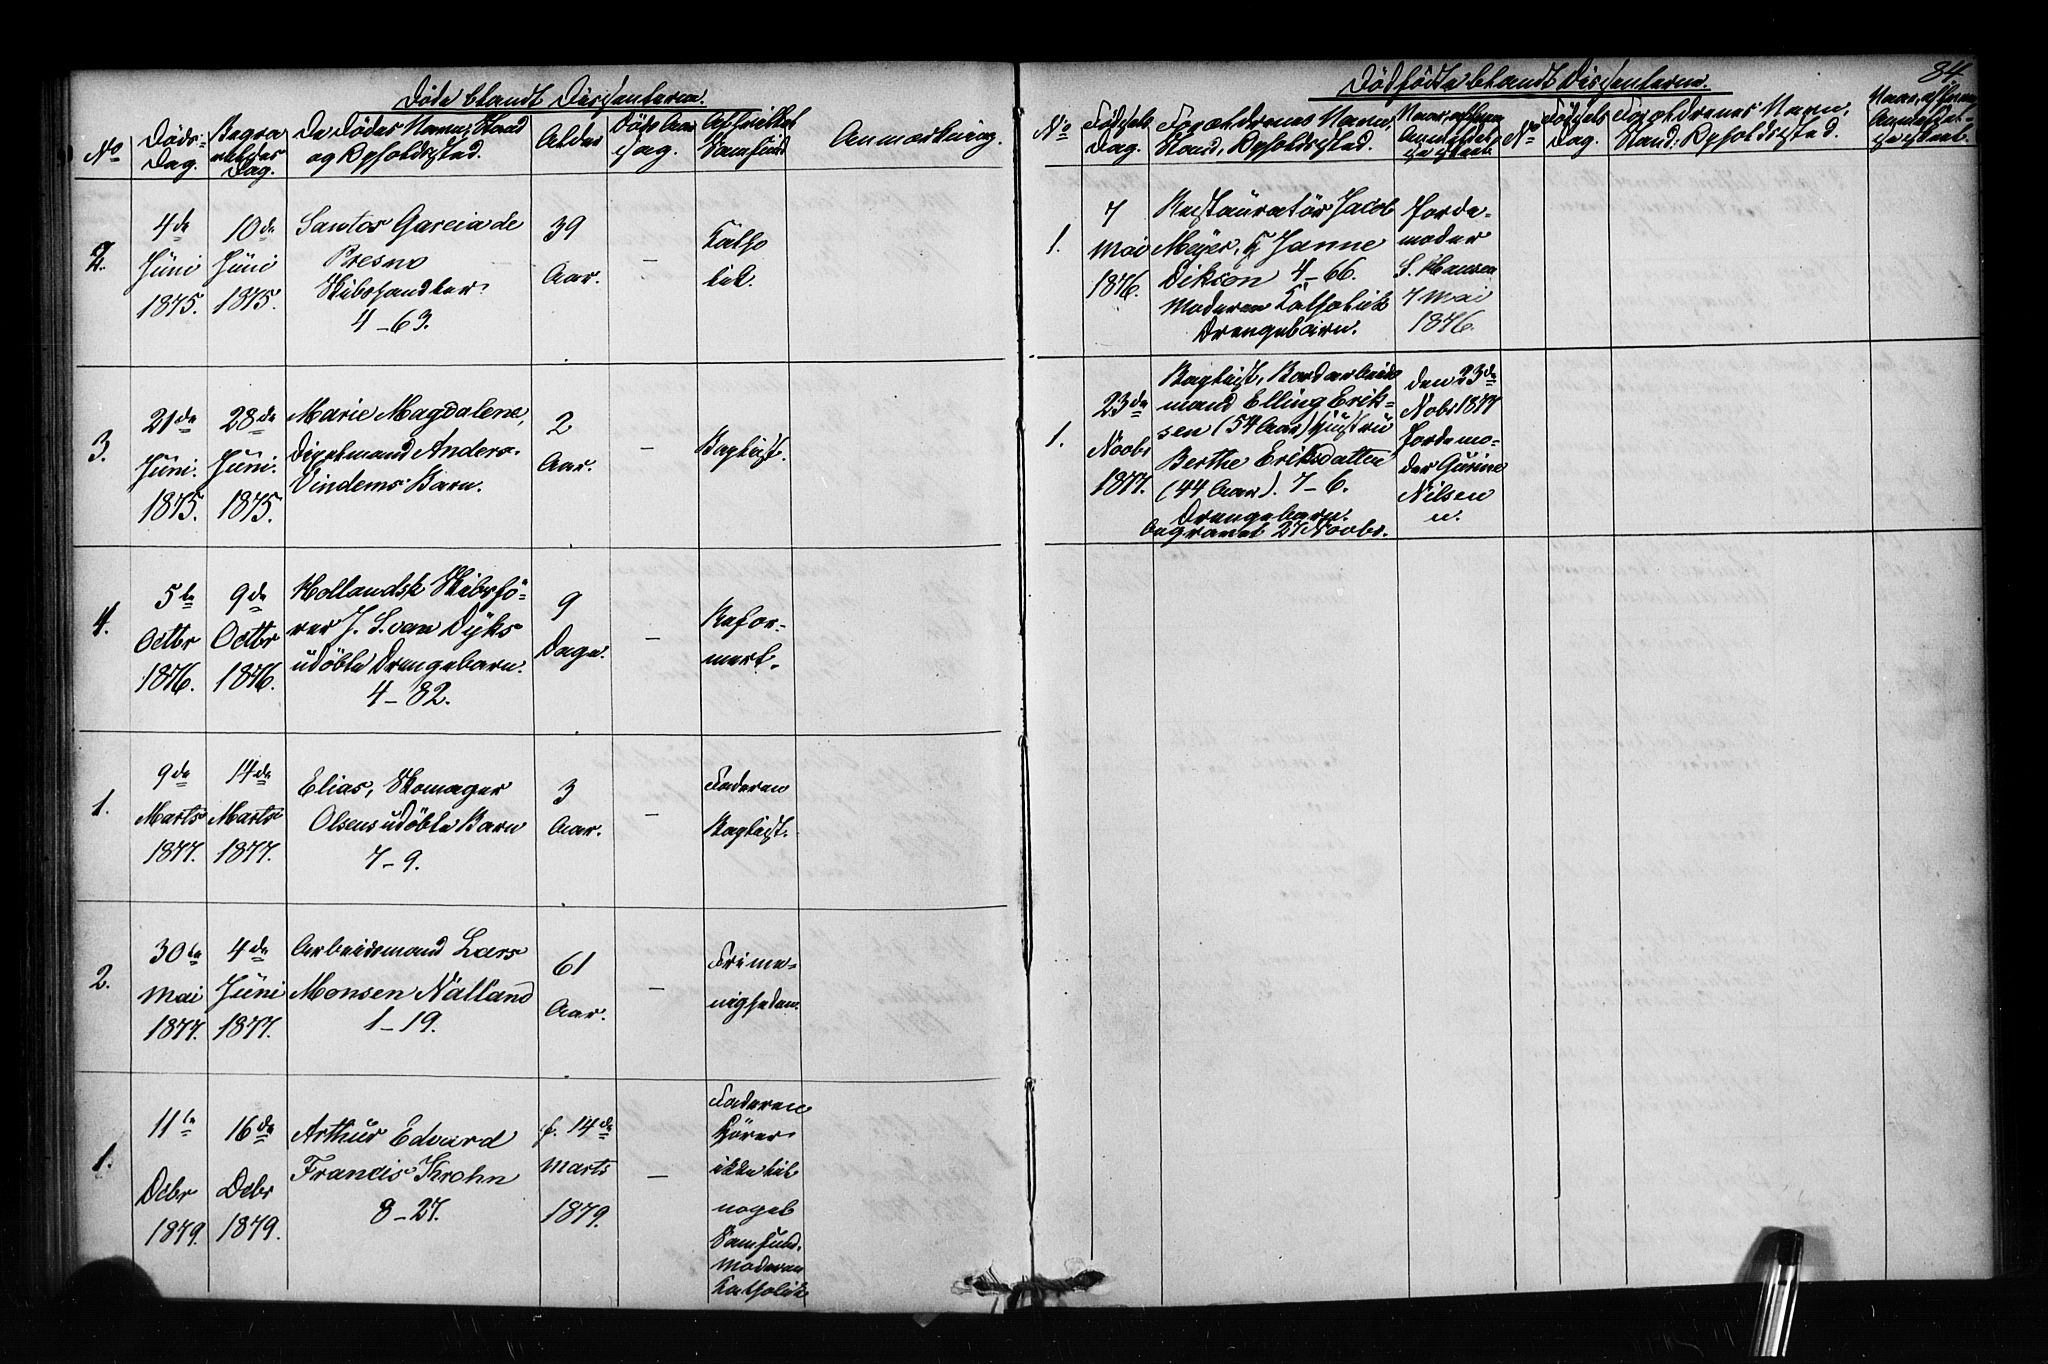 Døde blandt Dissenterne.
No
Døds-
Dag.
Begra
velses
Dag.
De Dødes Navne, Stand
og Opholdssted.
Alder
Döds Aar
sag.
Samfund
Anmærkning.
2.
4de
Jüni
1875.
10de
Jüni
1875.
Santos Garcia de
Presno
Skibshandler.
4-63.
39
Aar.
-
Katho
lik.
3.
21de
Jüni.
1875.
28de
Jüni.
1875.
Marie Magdalene,
Distmand Anders
Vindems Barn.
2
Aar.
-
Baptist.
4.
5te
Octbr
1876.
9de
Octbr
1876.
Hollandsk Skibsfö-
rer J. S. van Dÿks
udöbte Drengebarn.
4-82.
9
Dage.
-
Refor-
mert.
1.
9de
Marts
1877.
14de
Marts
1877.
Elias, Skomager
Olsens udöbte Barn
7-9.
3
Aar.
-
Faderen
Baptist.
2.
30te
Mai
1877.
4de
Jüni
1877.
Arbeidsmand Lars
Monsen Nålland
1-19.
61
Aar.
-
Frime-
nigheden.
1.
11te
Dcbr
1879.
16de
Dcbr
1879.
Arthür Edvard
Francis Krohn
8-27.
f. 14de
Marts
1879.
-
Faderen
hörer
ikke til
noget
Samfund.
Moderen
Katholik
84
Dödfödte blandt Dissenterne.
No
Födsels
Dag.
Forældrenes Navne,
Stand, Opholdssted.
Naar, af hvem
Anmeldelse
er skeet.
No
Födsels
Dag.
Forældrenes Navn,
Stand, Opholdssted.
Naar, af hvem
Anmeldel-
se er skeet.
1.
7
Mai
1876.
Restauratör Jacob
Meÿer, & Janne
Dikson 4-66.
Moderen Katholik
Drengebarn.
Jorde-
moder
S. Hansen
7 Mai
1876.
1.
23de
Novbr
1877.
Baptist, Bordarbeids
mand Elling Erik-
sen (54 Aar) Hustrü
Berthe Eriksdatter
(44 Aar). 7-6.
Drengebarn.
begravet 27 Novbr.
den 23de
Nobr 1877
Jordemo-
der Gürine
Nilsen